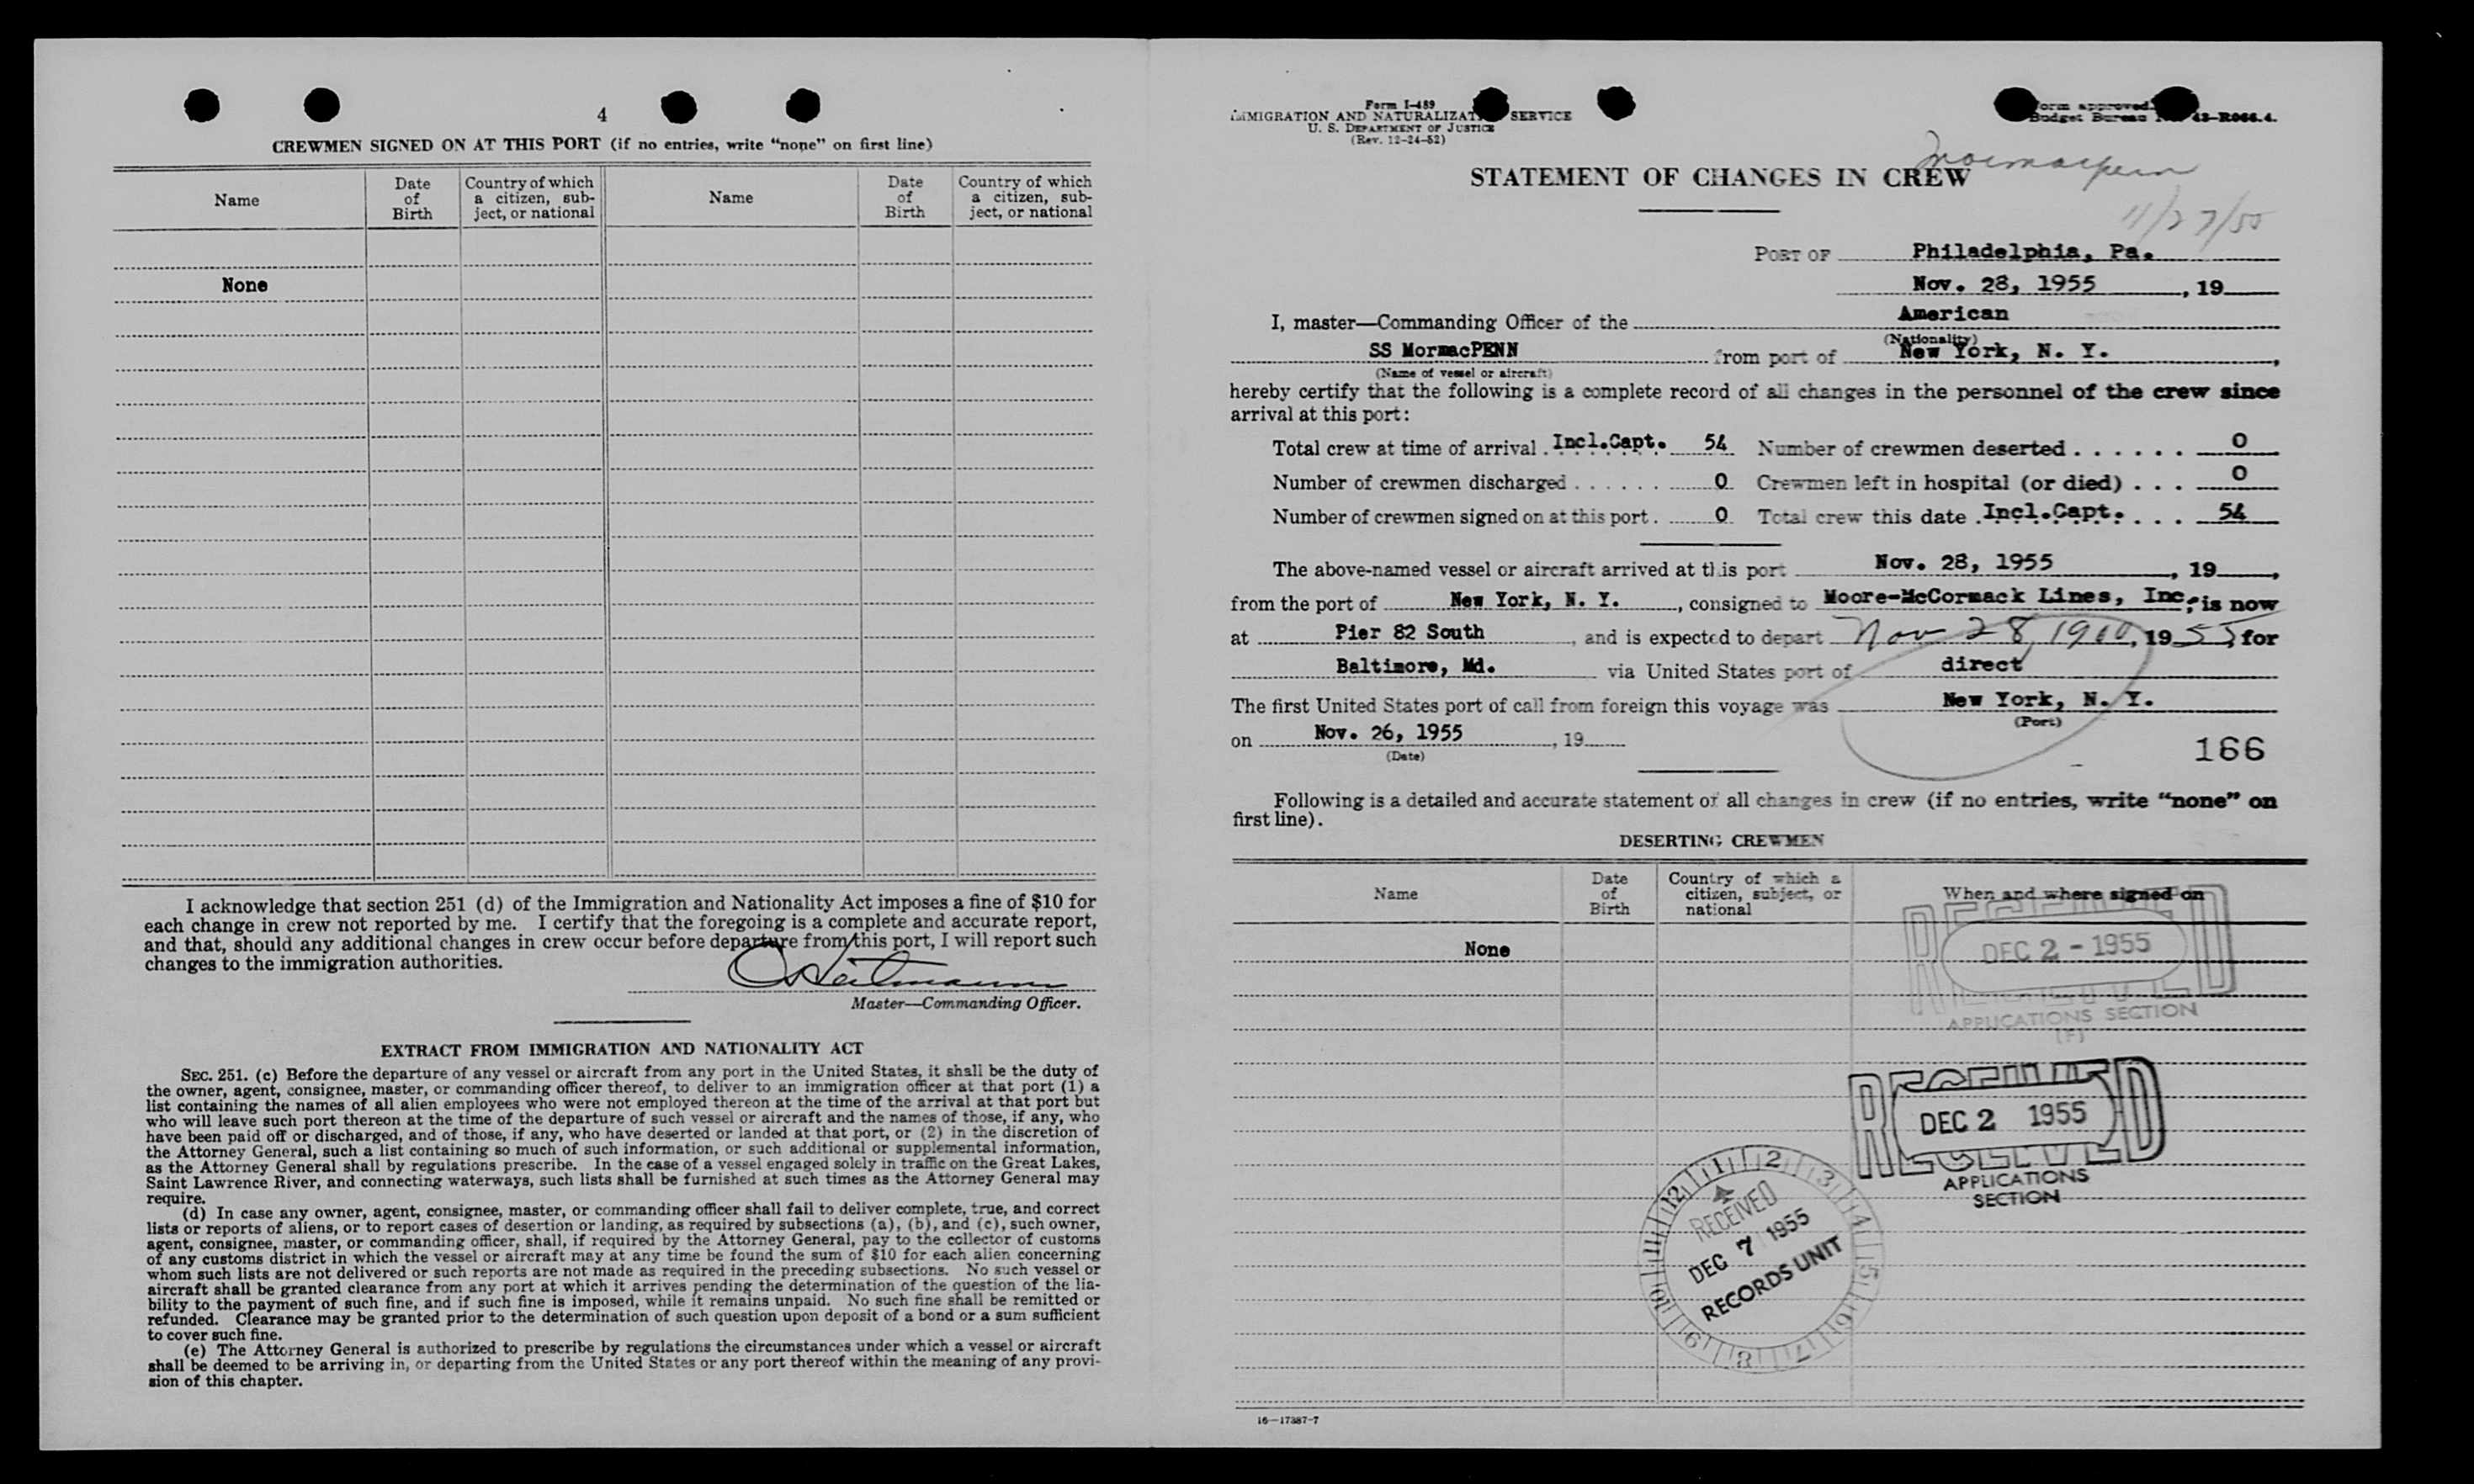 4
CREWMEN SIGNED ON AT THIS PORT (if no entries, write “none” on first line)
Name
Date of Birth
Country of which a citizen, subject, or national
Name
Date of Birth
Country of which a citizen, subject, or national
None
I acknowledge that section 251 (d) of the Immigration and Nationality Act imposes a fine of $10 for
each change in crew not reported by me. I certify that the foregoing is a complete and accurate report,
and that, should any additional changes in crew occur before departure from this port, I will report such
changes to the immigration authorities.
Master—Commanding Officer.
EXTRACT FROM IMMIGRATION AND NATIONALITY ACT
SEC. 251. (c) Before the departure of any vessel or aircraft from any port in the United States, it shall be the duty of
the owner, agent, consignee, master, or commanding officer thereof, to deliver to an immigration officer at that port (1) a
list containing the names of all alien employees who were not employed thereon at the time of the arrival at that port but
who will leave such port thereon at the time of the departure of such vessel or aircraft and the names of those, if any, who
have been paid off or discharged, and of those, if any, who have deserted or landed at that port, or (2) in the discretion of
the Attorney General, such a list containing so much of such information, or such additional or supplemental information,
as the Attorney General shall by regulations prescribe. In the case of a vessel engaged solely in traffic on the Great Lakes,
Saint Lawrence River, and connecting waterways, such lists shall be furnished at such times as the Attorney General may
require.
(d) In case any owner, agent, consignee, master, or commanding officer shall fail to deliver complete, true, and correct
lists or reports of aliens, or to report cases of desertion or landing, as required by subsections (a), (b), and (c), such owner,
agent, consignee, master, or commanding officer, shall, if required by the Attorney General, pay to the collector of customs
of any customs district in which the vessel or aircraft may at any time be found the sum of $10 for each alien concerning
whom such lists are not delivered or such reports are not made as required in the preceding subsections. No such vessel or
aircraft shall be granted clearance from any port at which it arrives pending the determination of the question of the lia-
bility to the payment of such fine, and if such fine is imposed, while it remains unpaid. No such fine shall be remitted or
refunded. Clearance may be granted prior to the determination of such question upon deposit of a bond or a sum sufficient
to cover such fine.
(e) The Attorney General is authorized to prescribe by regulations the circumstances under which a vessel or aircraft
shall be deemed to be arriving in, or departing from the United States or any port thereof within the meaning of any provi-
sion of this chapter.
Form I-489
IMMIGRATION AND NATURALIZATION SERVICE
U. S. DEPARTMENT OF JUSTICE
(Rev. 12-24-52)
Form approved.
Budget Bureau 43-R066.4.
Mormacpenn
STATEMENT OF CHANGES IN CREW
11/27/55
PORT OF Philadelphia, Pa.
Nov. 28, 1955, 19
I, master—Commanding Officer of the American
(Nationality)
SS MormacPENN from port of New York, N. Y.,
(Name of vessel or aircraft)
hereby certify that the following is a complete record of all changes in the personnel of the crew since
arrival at this port:
Total crew at time of arrival . Incl.Capt. 54 Number of crewmen deserted . . . . . . 0
Number of crewmen discharged . . . . . . 0 Crewmen left in hospital (or died) . . . 0
Number of crewmen signed on at this port . 0 Total crew this date . Incl.Capt. . . . 54
The above-named vessel or aircraft arrived at this port Nov. 28, 1955, 19,
from the port of New York, N. Y., consigned to Moore-McCormack Lines, Inc., is now
at Pier 82 South, and is expected to depart Nov 28, 1900, 1955, for
Baltimore, Md. via United States port of direct
The first United States port of call from foreign this voyage was New York, N. Y.
(Port)
on Nov. 26, 1955, 19
(Date)
166
Following is a detailed and accurate statement of all changes in crew (if no entries, write “none” on
first line).
DESERTING CREWMEN
Name
Date of Birth
Country of which a citizen, subject, or national
When and where signed on
None
RECEIVED
DEC 2 - 1955
APPLICATIONS SECTION
(F)
RECEIVED
DEC 2 1955
APPLICATIONS
SECTION
1 2 3 4 5 6 7 8 9 10 11 12
RECEIVED
DEC 7 1955
RECORDS UNIT
16—17387-7